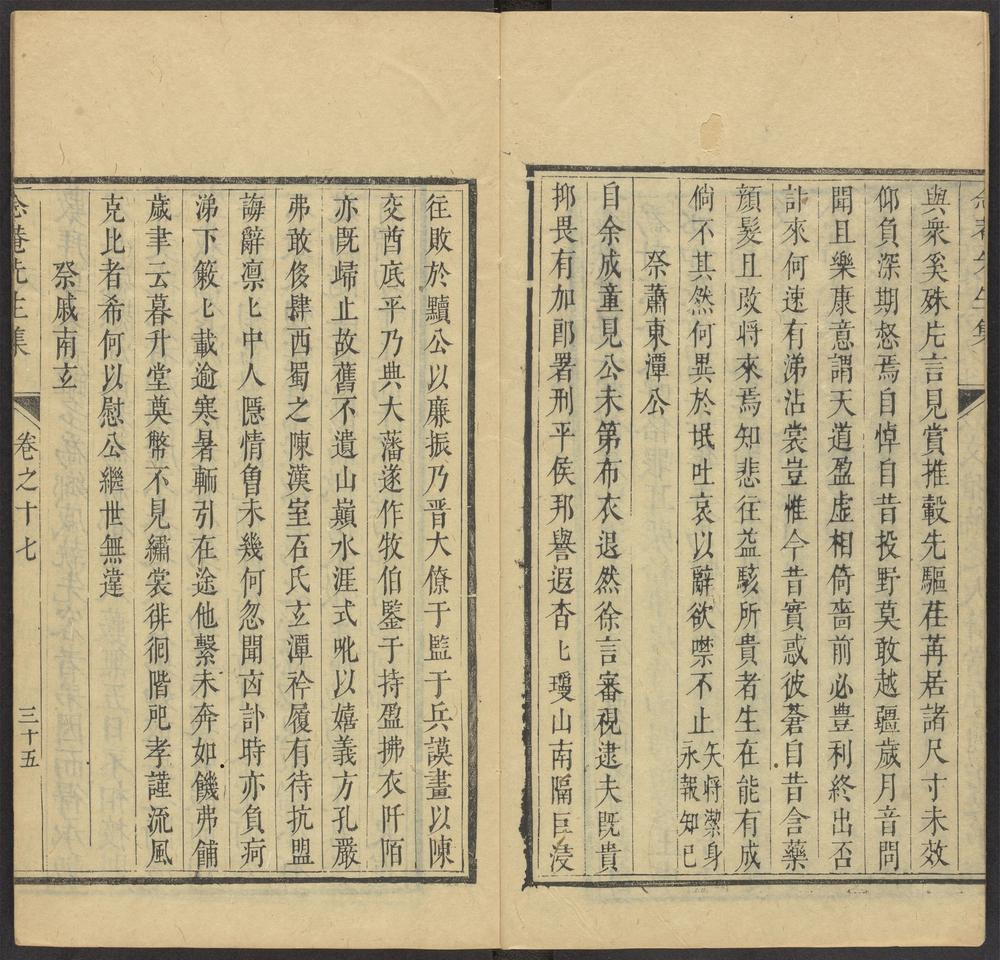 與衆奚殊片言見賞推轂先驅荏苒居諸尺寸未效
仰負深期惄焉自悼自昔投野莫敢越疆歲月音問
聞且樂康意謂天道盈虛相倚嗇前必豊利終出否
訃來何速有涕沾裳豈惟今昔實惑彼蒼自昔含藥
顔髮且改將來焉知悲往益駭所貴者生在能有成
倘不其然何異於氓吐哀以辭欲噤不止矢將潔身
永報知巳
祭蕭東潭公
自余成童見公未第布衣退然徐言審視逮夫既貴
抑畏有加郎署刑平侯邦譽遐杳匕璦山南隔巨浸
往敗於黷公以廉振乃晋大僚于監于兵謨畫以陳
交酋底平乃典大藩遂作牧伯鍳于持盈拂衣阡陌
亦既歸止故舊不遺山巔水涯式吪以嬉義方孔嚴
弗敢侈肆西蜀之陳漢室石氏玄潭衿履有待抗盟
誨辭凛匕中人隱情曾未幾何忽聞訃時亦負疴
涕下簌匕載逾寒暑輀引在途他繫未奔如饑弗餔
歲聿云暮升堂奠幣不見繡裳徘徊階戺孝謹流風
克比者希何以慰公繼世無違
祭戚南玄
念菴先生集
卷之十七
三十五